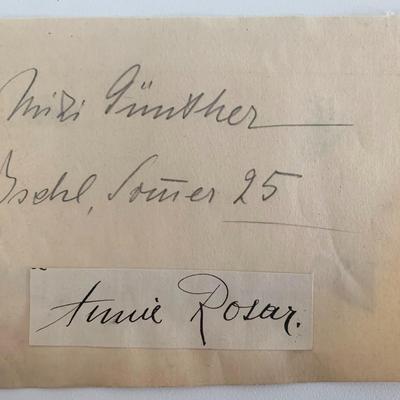 Mizi Günther
Ischl, Som̅er 25
Annie Rosar.